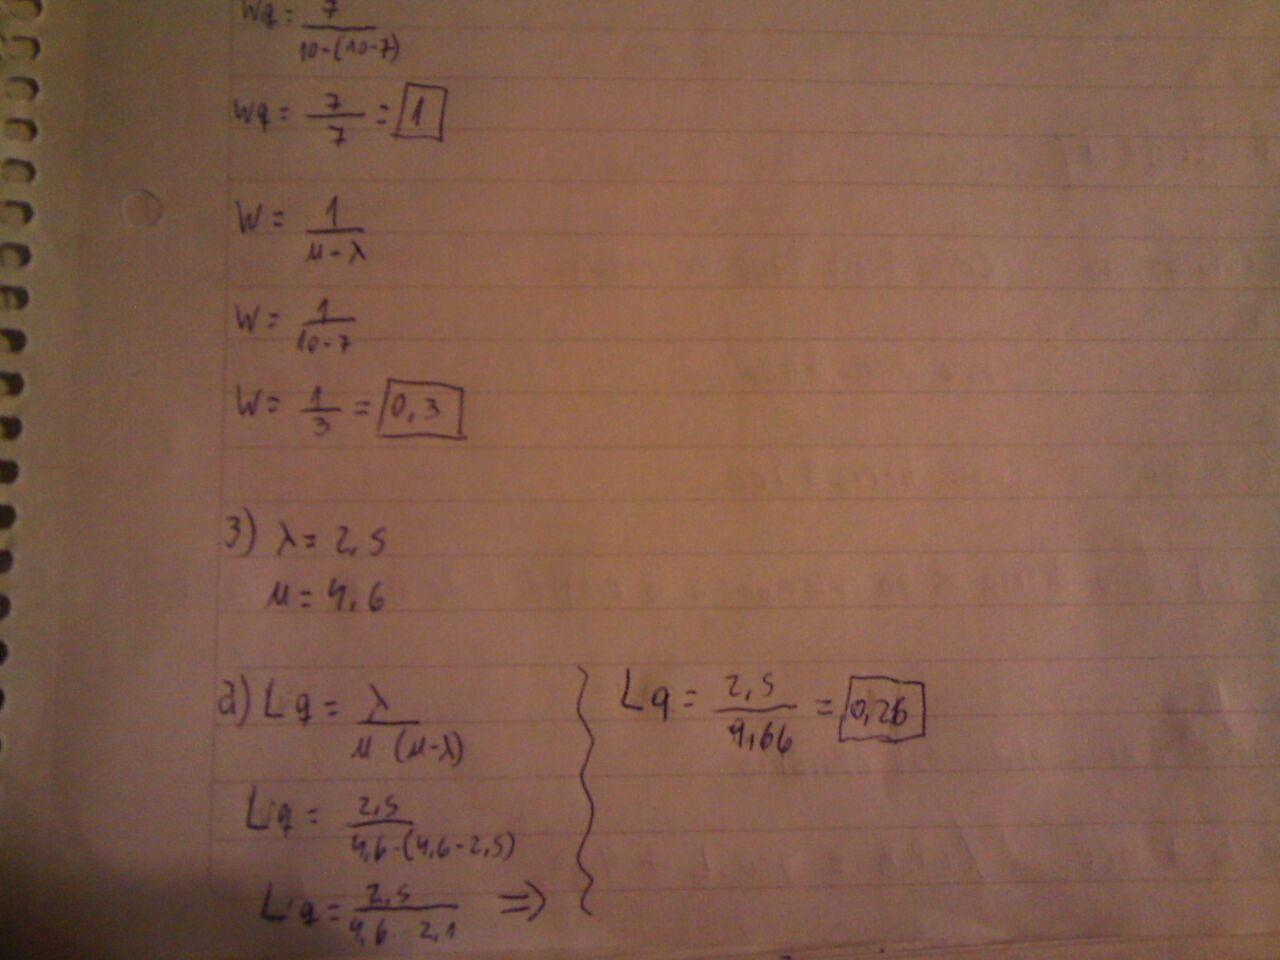 Wq = 7 / 10-(10-7)
Wq = 7 / 7 = 1
W = 1 / μ-λ
W = 1 / 10-7
W = 1 / 3 = 0,3
3) λ = 2,5
μ = 4,6
a) Lq = λ / μ (μ-λ)
Lq = 2,5 / 4,6-(4,6-2,5)
Lq = 2,5 / 4,6 - 2,1 ⇒
Lq = 2,5 / 9,66 = 0,26